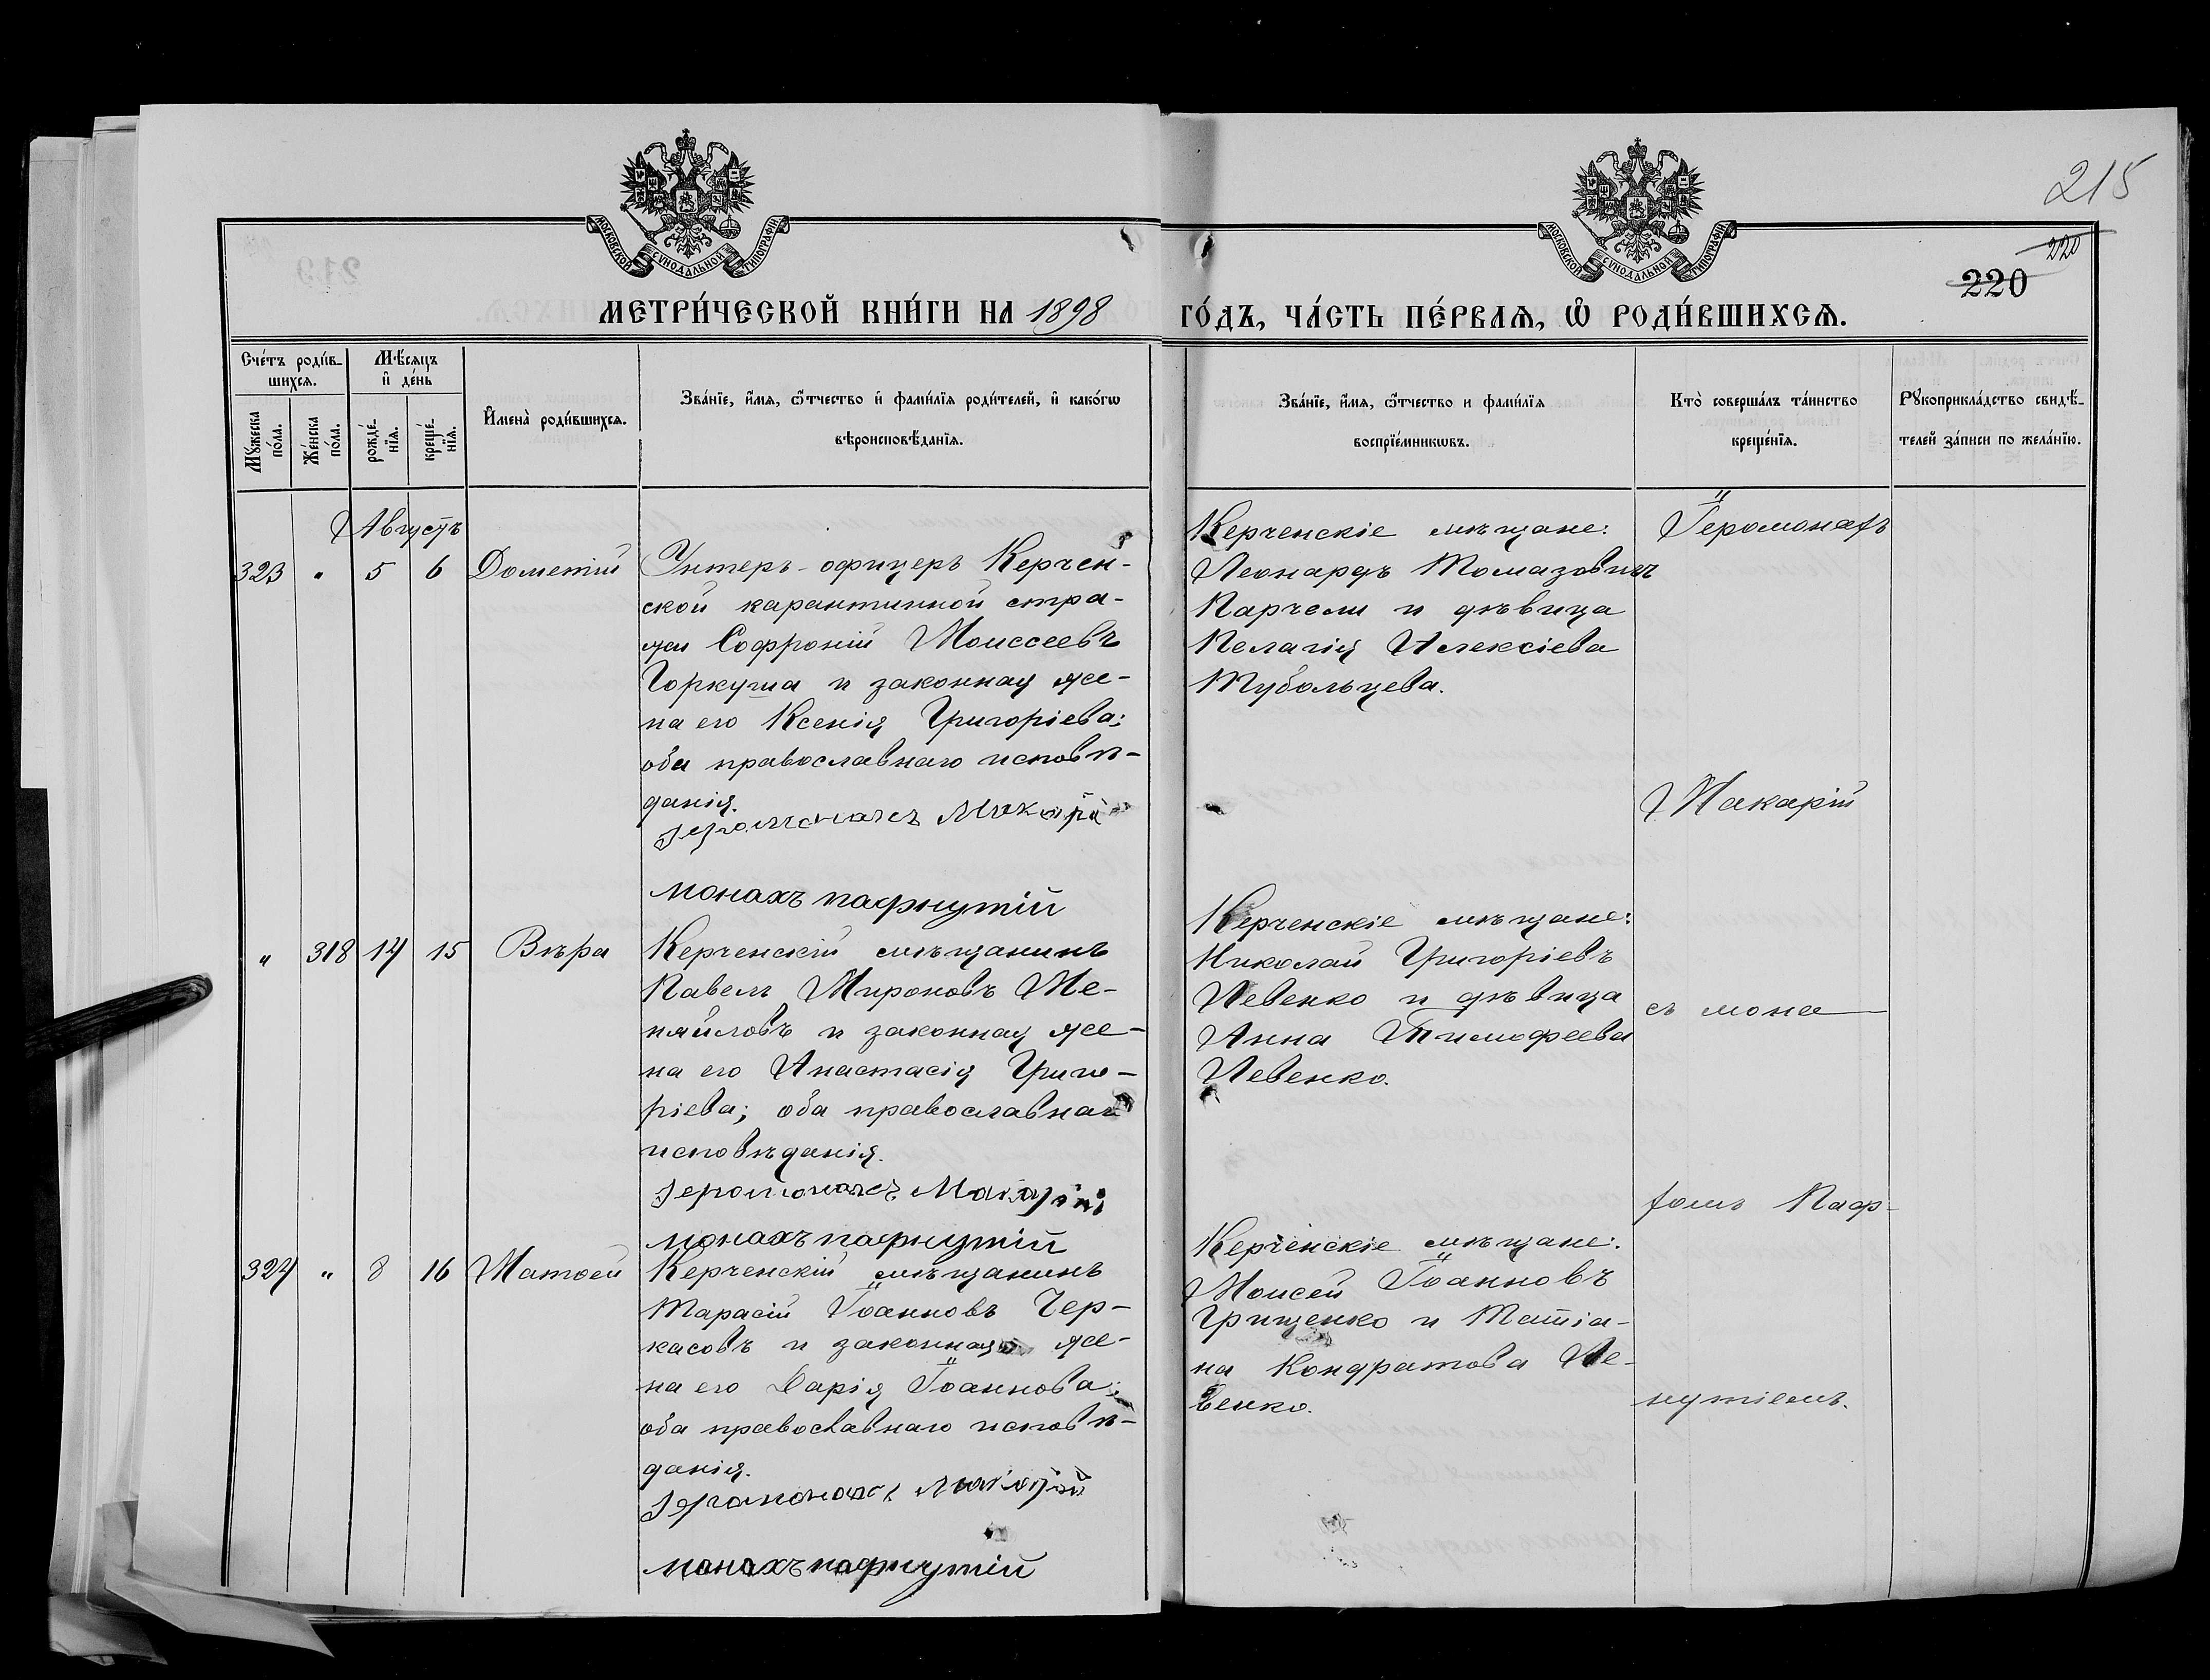 215
220
220
МОСКОВСКОЙ СУНОДАЛЬНОЙ ТИПОГРАФІИ
МОСКОВСКОЙ СУНОДАЛЬНОЙ ТИПОГРАФІИ
МЕТРИ́ЧЕСКОЙ КНИ́ГИ НА 1898 ГО́ДЪ, ЧА́СТЬ ПЕ́РВАѦ, Ѡ РОДИ́ВШИХСѦ.
Сче́тъ роди́в-
шихсѧ.
Мѣ́сѧцъ
и де́нь
Мꙋжеска
по́ла.
Же́нска
по́ла.
рожде́-
нїѧ.
креще́-
нїѧ.
Имена̀ роди́вшихсѧ.
Зва́нїе, и́мѧ, ѻ́тчество и фами́лїѧ роди́телей, и како́гѡ
вѣроисповѣ́данїѧ.
Зва́нїе, и́мѧ, ѻ́тчество и фами́лїѧ
воспрїе́мникѡвъ.
Кто̀ соверша́лъ та́инство
креще́нїѧ.
Рꙋкоприкла́дство свидѣ́-
телей за́писи по жела́нїю.
Августъ
323 " 5 6 Дометій
Унтеръ-офицеръ Керчен-
ской карантинной стра-
жи Софроній Моисеевъ
Горкуша и законная же-
на его Ксенія Григоріева;
оба православнаго исповѣ-
данія.
Іеромонахъ Макарій
монахъ пафнутій
Керченскіе мѣщане:
Леонардъ Томазовичъ
Парчели и дѣвица
Пелагія Алексіева
Тубольцева.
Іеромонахъ
Макарій
" 318 14 15 Вѣра
Керченскій мѣщанинъ
Павелъ Мироновъ Ме-
няйловъ и законная же-
на его Анастасія Григо-
ріева; оба православнаго
исповѣданія.
Іеромонахъ Макарій
монахъ пафнутій
Керченскіе мѣщане:
Николай Григоріевъ
Левенко и дѣвица
Анна Тимофеева
Левенко.
съ мона-
хомъ Паф-
324 " 8 16 Матѳей
Керченскій мѣщанинъ
Тарасій Іоанновъ Чер-
касовъ и законная же-
на его Дарія Іоаннова;
оба православнаго исповѣ-
данія.
Іеромонахъ Макарій
монахъ пафнутій
Керченскіе мѣщане:
Моисей Іоанновъ
Грищенко и Татіа-
на Кондратова Ле-
венко.
нутіемъ.